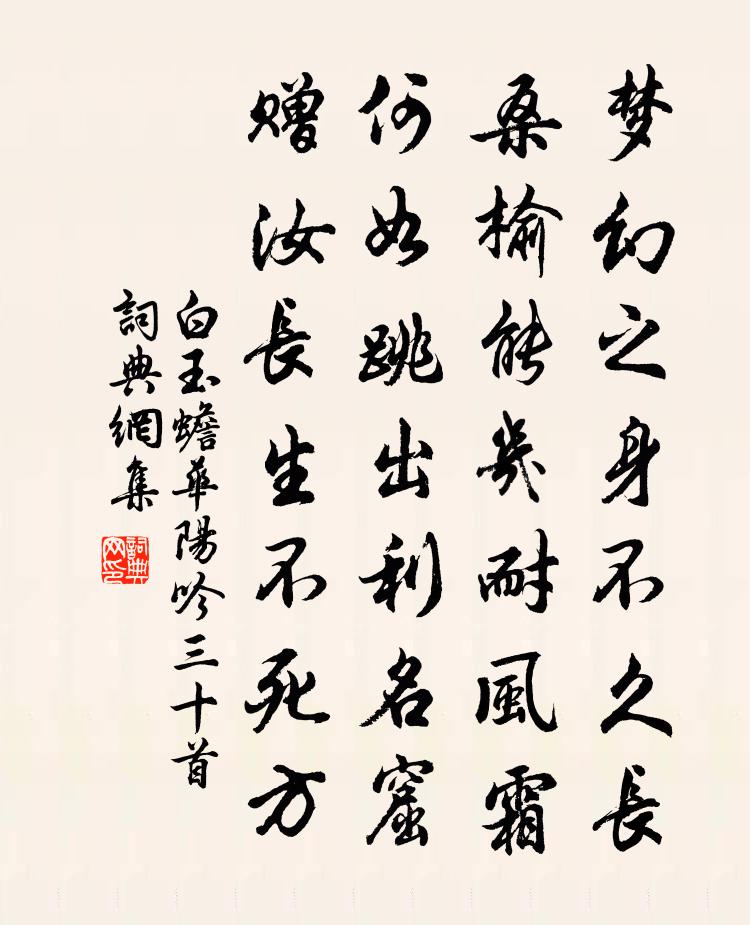 梦幻之身不久長
桑榆能幾耐風霜
何如跳出利名窟
贈汝長生不死方
白玉蟾華陽吟三十首
詞典網集
詞典网印